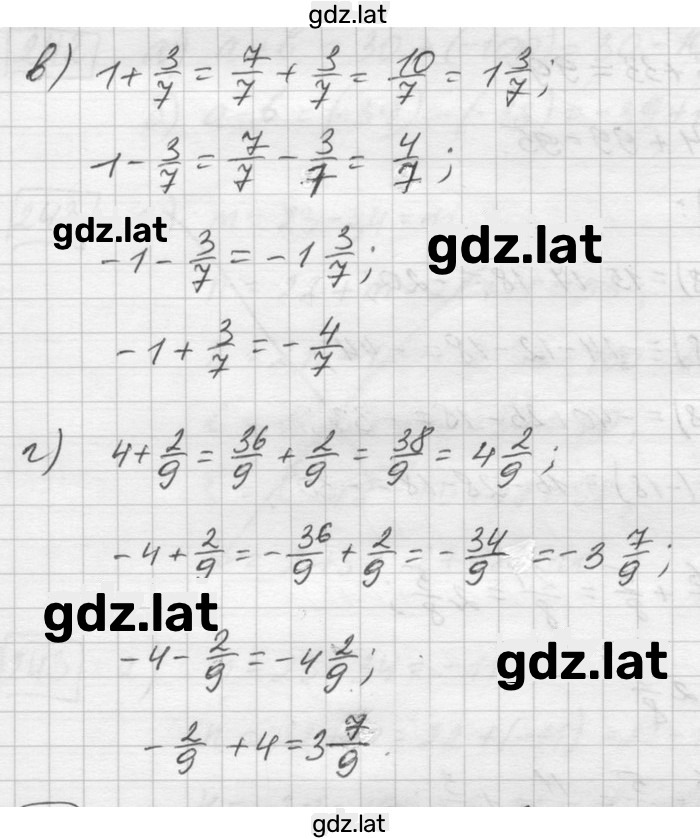 gdz.lat
в) 1 + 3/7 = 7/7 + 3/7 = 10/7 = 1 3/7;
1 - 3/7 = 7/7 - 3/7 = 4/7;
gdz.lat
gdz.lat
-1 - 3/7 = -1 3/7;
-1 + 3/7 = -4/7
г) 4 + 2/9 = 36/9 + 2/9 = 38/9 = 4 2/9;
-4 + 2/9 = -36/9 + 2/9 = -34/9 = -3 7/9;
gdz.lat
-4 - 2/9 = -4 2/9;
gdz.lat
-2/9 + 4 = 3 7/9.
gdz.lat